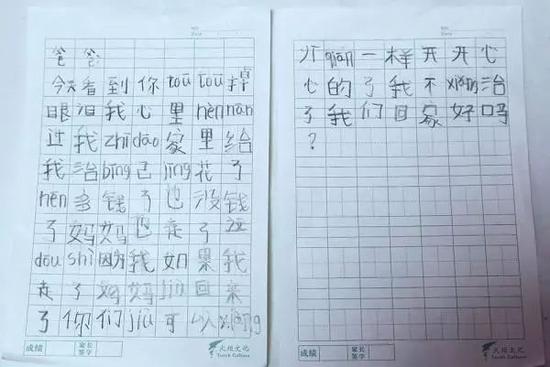 爸爸:
今天看到你tōu tōu掉
眼泪我心里hěn nán
过我zhī dào家里给
我治bìng已jīng花了
hěn多钱了也没钱
了妈妈也走了这
dōu shì因为我如果我
走了妈妈jiù回来
了你们jiù可以xiàng
成绩 家长签字
qián一样开开心
心的了我不xiǎng治
了我们回家好吗
?
成绩 家长签字